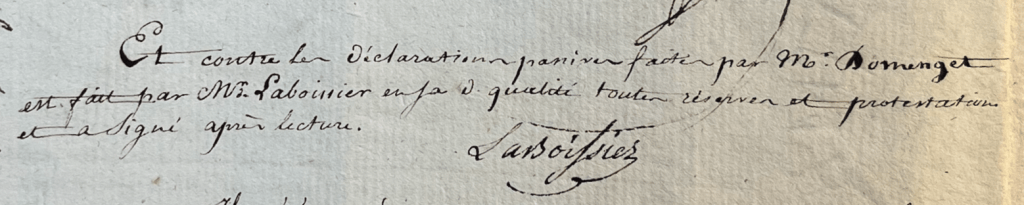 Et contre les déclarations passives faites par Mr. Domenget
est fait par Mr. Laboissier en sa d. qualité toutes réserves et protestations
et a signé après lecture.
LaBoissiez